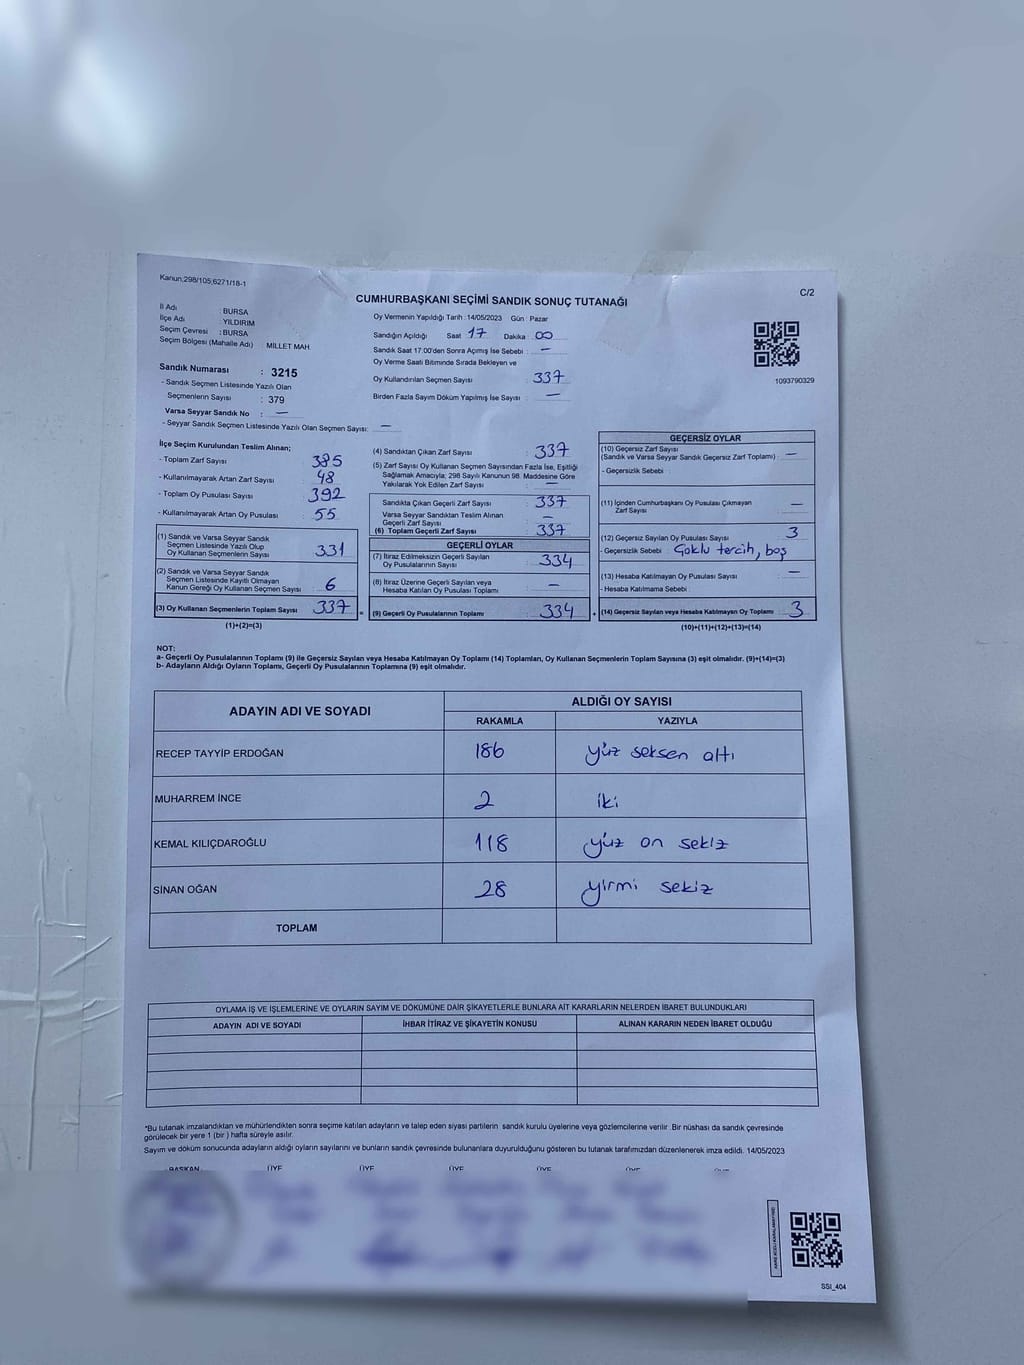 Kanun:298/105;6271/18-1
C/2
CUMHURBAŞKANI SEÇİMİ SANDIK SONUÇ TUTANAĞI
İl Adı : BURSA
İlçe Adı : YILDIRIM
Seçim Çevresi : BURSA
Seçim Bölgesi (Mahalle Adı) : MİLLET MAH.
Sandık Numarası : 3215
- Sandık Seçmen Listesinde Yazılı Olan
Seçmenlerin Sayısı : 379
Varsa Seyyar Sandık No : —
- Seyyar Sandık Seçmen Listesinde Yazılı Olan Seçmen Sayısı: —
Oy Vermenin Yapıldığı Tarih :14/05/2023 Gün : Pazar
Sandığın Açıldığı Saat 17 Dakika : 00
Sandık Saat 17:00'den Sonra Açımış İse Sebebi : —
Oy Verme Saati Bitiminde Sırada Bekleyen ve
Oy Kullandırılan Seçmen Sayısı 337
Birden Fazla Sayım Döküm Yapılmış İse Sayısı —
1093790329
İlçe Seçim Kurulundan Teslim Alınan;
- Toplam Zarf Sayısı 385
- Kullanılmayarak Artan Zarf Sayısı 48
- Toplam Oy Pusulası Sayısı 392
- Kullanılmayarak Artan Oy Pusulası 55
(1) Sandık ve Varsa Seyyar Sandık
Seçmen Listesinde Yazılı Olup
Oy Kullanan Seçmenlerin Sayısı 331
(2) Sandık ve Varsa Seyyar Sandık
Seçmen Listesinde Kayıtlı Olmayan
Kanun Gereği Oy Kullanan Seçmen Sayısı 6
(3) Oy Kullanan Seçmenlerin Toplam Sayısı 337
(1)+(2)=(3)
(4) Sandıktan Çıkan Zarf Sayısı 337
(5) Zarf Sayısı Oy Kullanan Seçmen Sayısından Fazla İse, Eşitliği
Sağlamak Amacıyla; 298 Sayılı Kanunun 98. Maddesine Göre
Yakılarak Yok Edilen Zarf Sayısı —
Sandıkta Çıkan Geçerli Zarf Sayısı 337
Varsa Seyyar Sandıktan Teslim Alınan
Geçerli Zarf Sayısı —
(6) Toplam Geçerli Zarf Sayısı 337
GEÇERLİ OYLAR
(7) İtiraz Edilmeksizin Geçerli Sayılan
Oy Pusulalarının Sayısı 334
(8) İtiraz Üzerine Geçerli Sayılan veya
Hesaba Katılan Oy Pusulası Toplamı —
= (9) Geçerli Oy Pusulalarının Toplamı 334
GEÇERSİZ OYLAR
(10) Geçersiz Zarf Sayısı
(Sandık ve Varsa Seyyar Sandık Geçersiz Zarf Toplamı) : —
- Geçersizlik Sebebi :
(11) İçinden Cumhurbaşkanı Oy Pusulası Çıkmayan
Zarf Sayısı —
(12) Geçersiz Sayılan Oy Pusulası Sayısı 3
- Geçersizlik Sebebi : Çoklu tercih, boş
(13) Hesaba Katılmayan Oy Pusulası Sayısı —
- Hesaba Katılmama Sebebi
+ (14) Geçersiz Sayılan veya Hesaba Katılmayan Oy Toplamı 3
(10)+(11)+(12)+(13)=(14)
NOT:
a- Geçerli Oy Pusulalarının Toplamı (9) ile Geçersiz Sayılan veya Hesaba Katılmayan Oy Toplamı (14) Toplamları, Oy Kullanan Seçmenlerin Toplam Sayısına (3) eşit olmalıdır. (9)+(14)=(3)
b- Adayların Aldığı Oyların Toplamı, Geçerli Oy Pusulalarının Toplamına (9) eşit olmalıdır.
ADAYIN ADI VE SOYADI
ALDIĞI OY SAYISI
RAKAMLA YAZIYLA
RECEP TAYYİP ERDOĞAN 186 yüz seksen altı
MUHARREM İNCE 2 iki
KEMAL KILIÇDAROĞLU 118 yüz on sekiz
SİNAN OĞAN 28 yirmi sekiz
TOPLAM
OYLAMA İŞ VE İŞLEMLERİNE VE OYLARIN SAYIM VE DÖKÜMÜNE DAİR ŞİKAYETLERLE BUNLARA AİT KARARLARIN NELERDEN İBARET BULUNDUKLARI
ADAYIN ADI VE SOYADI İHBAR İTİRAZ VE ŞİKAYETİN KONUSU ALINAN KARARIN NEDEN İBARET OLDUĞU
*Bu tutanak imzalandıktan ve mühürlendikten sonra seçime katılan adayların ve talep eden siyasi partilerin sandık kurulu üyelerine veya gözlemcilerine verilir. Bir nüshası da sandık çevresinde
görülecek bir yere 1 (bir ) hafta süreyle asılır.
Sayım ve döküm sonucunda adayların aldığı oyların sayılarını ve bunların sandık çevresinde bulunanlara duyurulduğunu gösteren bu tutanak tarafımızdan düzenlenerek imza edildi. 14/05/2023
BAŞKAN ÜYE ÜYE ÜYE ÜYE ÜYE ÜYE
SSİ_404